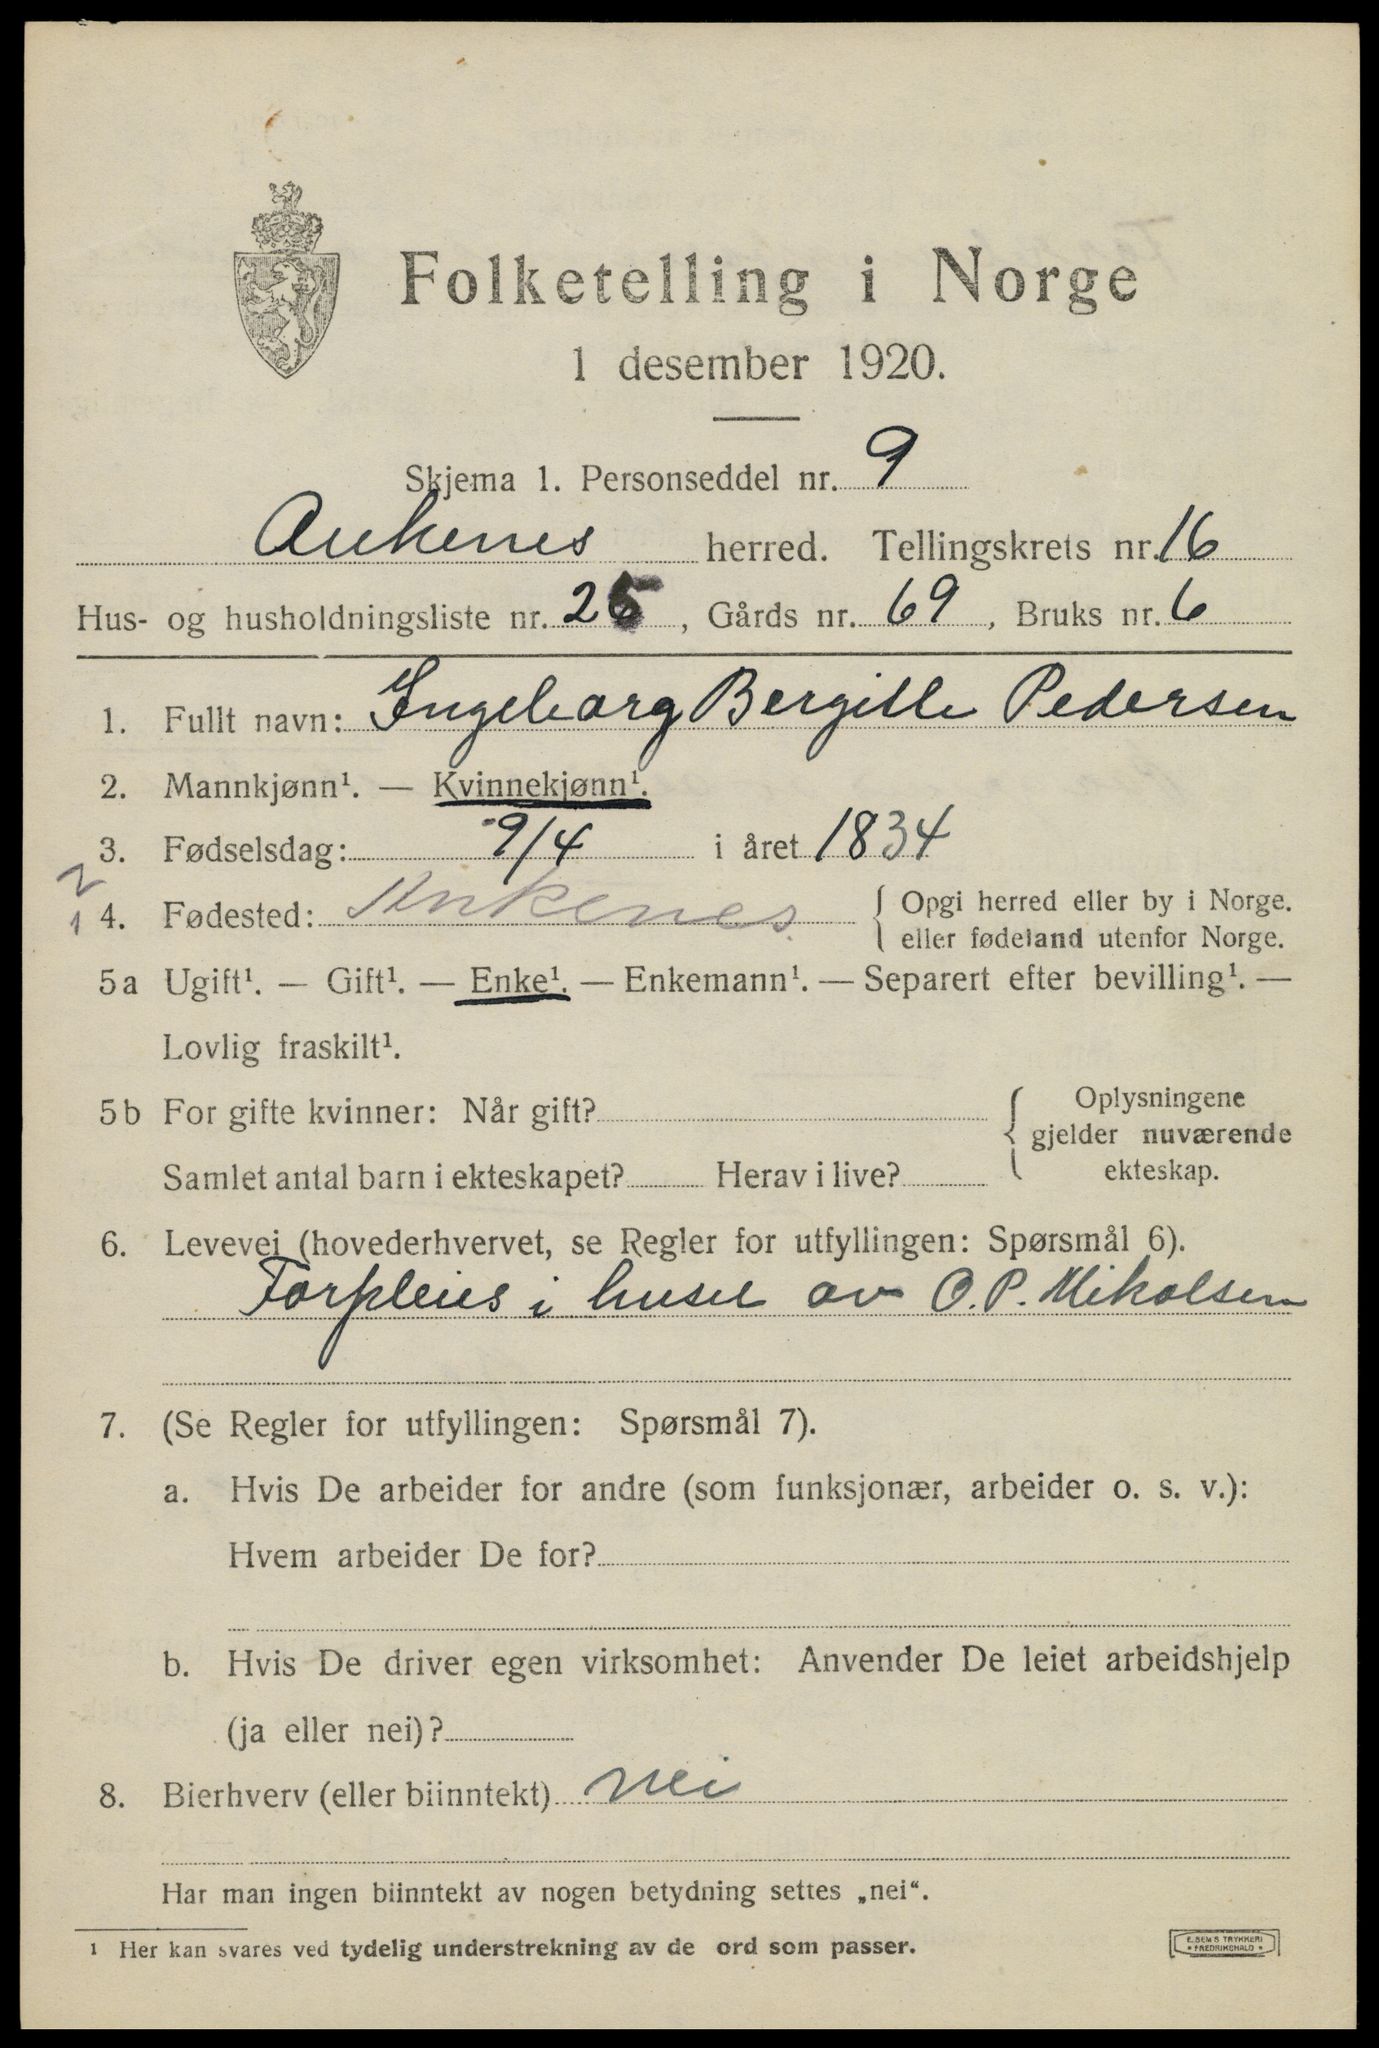 Folketelling i Norge
1 desember 1920.
Skjema 1. Personseddel nr. 9
Ankenes herred. Tellingskrets nr. 16
Hus- og husholdningsliste nr. 25, Gårds nr. 69, Bruks nr. 6
1. Fullt navn: Ingeborg Bergitte Pedersen
2. Mannkjønn¹. — Kvinnekjønn¹.
3. Fødselsdag: 9/4 i året 1834
4. Fødested: Ankenes { Opgi herred eller by i Norge.
eller fødeland utenfor Norge.
5a Ugift¹. — Gift¹. — Enke¹. — Enkemann¹. — Separert efter bevilling¹. —
Lovlig fraskilt¹.
5b For gifte kvinner: Når gift?
Samlet antal barn i ekteskapet? Herav i live?
Oplysningene
gjelder nuværende
ekteskap.
6. Levevei (hovederhvervet, se Regler for utfyllingen: Spørsmål 6).
Forpleies i huset av O. P. Mikalsen
7. (Se Regler for utfyllingen: Spørsmål 7).
a. Hvis De arbeider for andre (som funksjonær, arbeider o. s. v.):
Hvem arbeider De for?
b. Hvis De driver egen virksomhet: Anvender De leiet arbeidshjelp
(ja eller nei)?
8. Bierhverv (eller biinntekt) nei
Har man ingen biinntekt av nogen betydning settes „nei“.
¹ Her kan svares ved tydelig understrekning av de ord som passer.
E. SEM'S TRYKKERI
• FREDRIKSHALD •